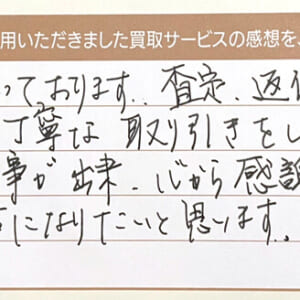 用いただきました買取サービスの感想を
っております。査定、返信
丁寧な取り引きをし
事が出来、心から感謝
になりたいと思います。